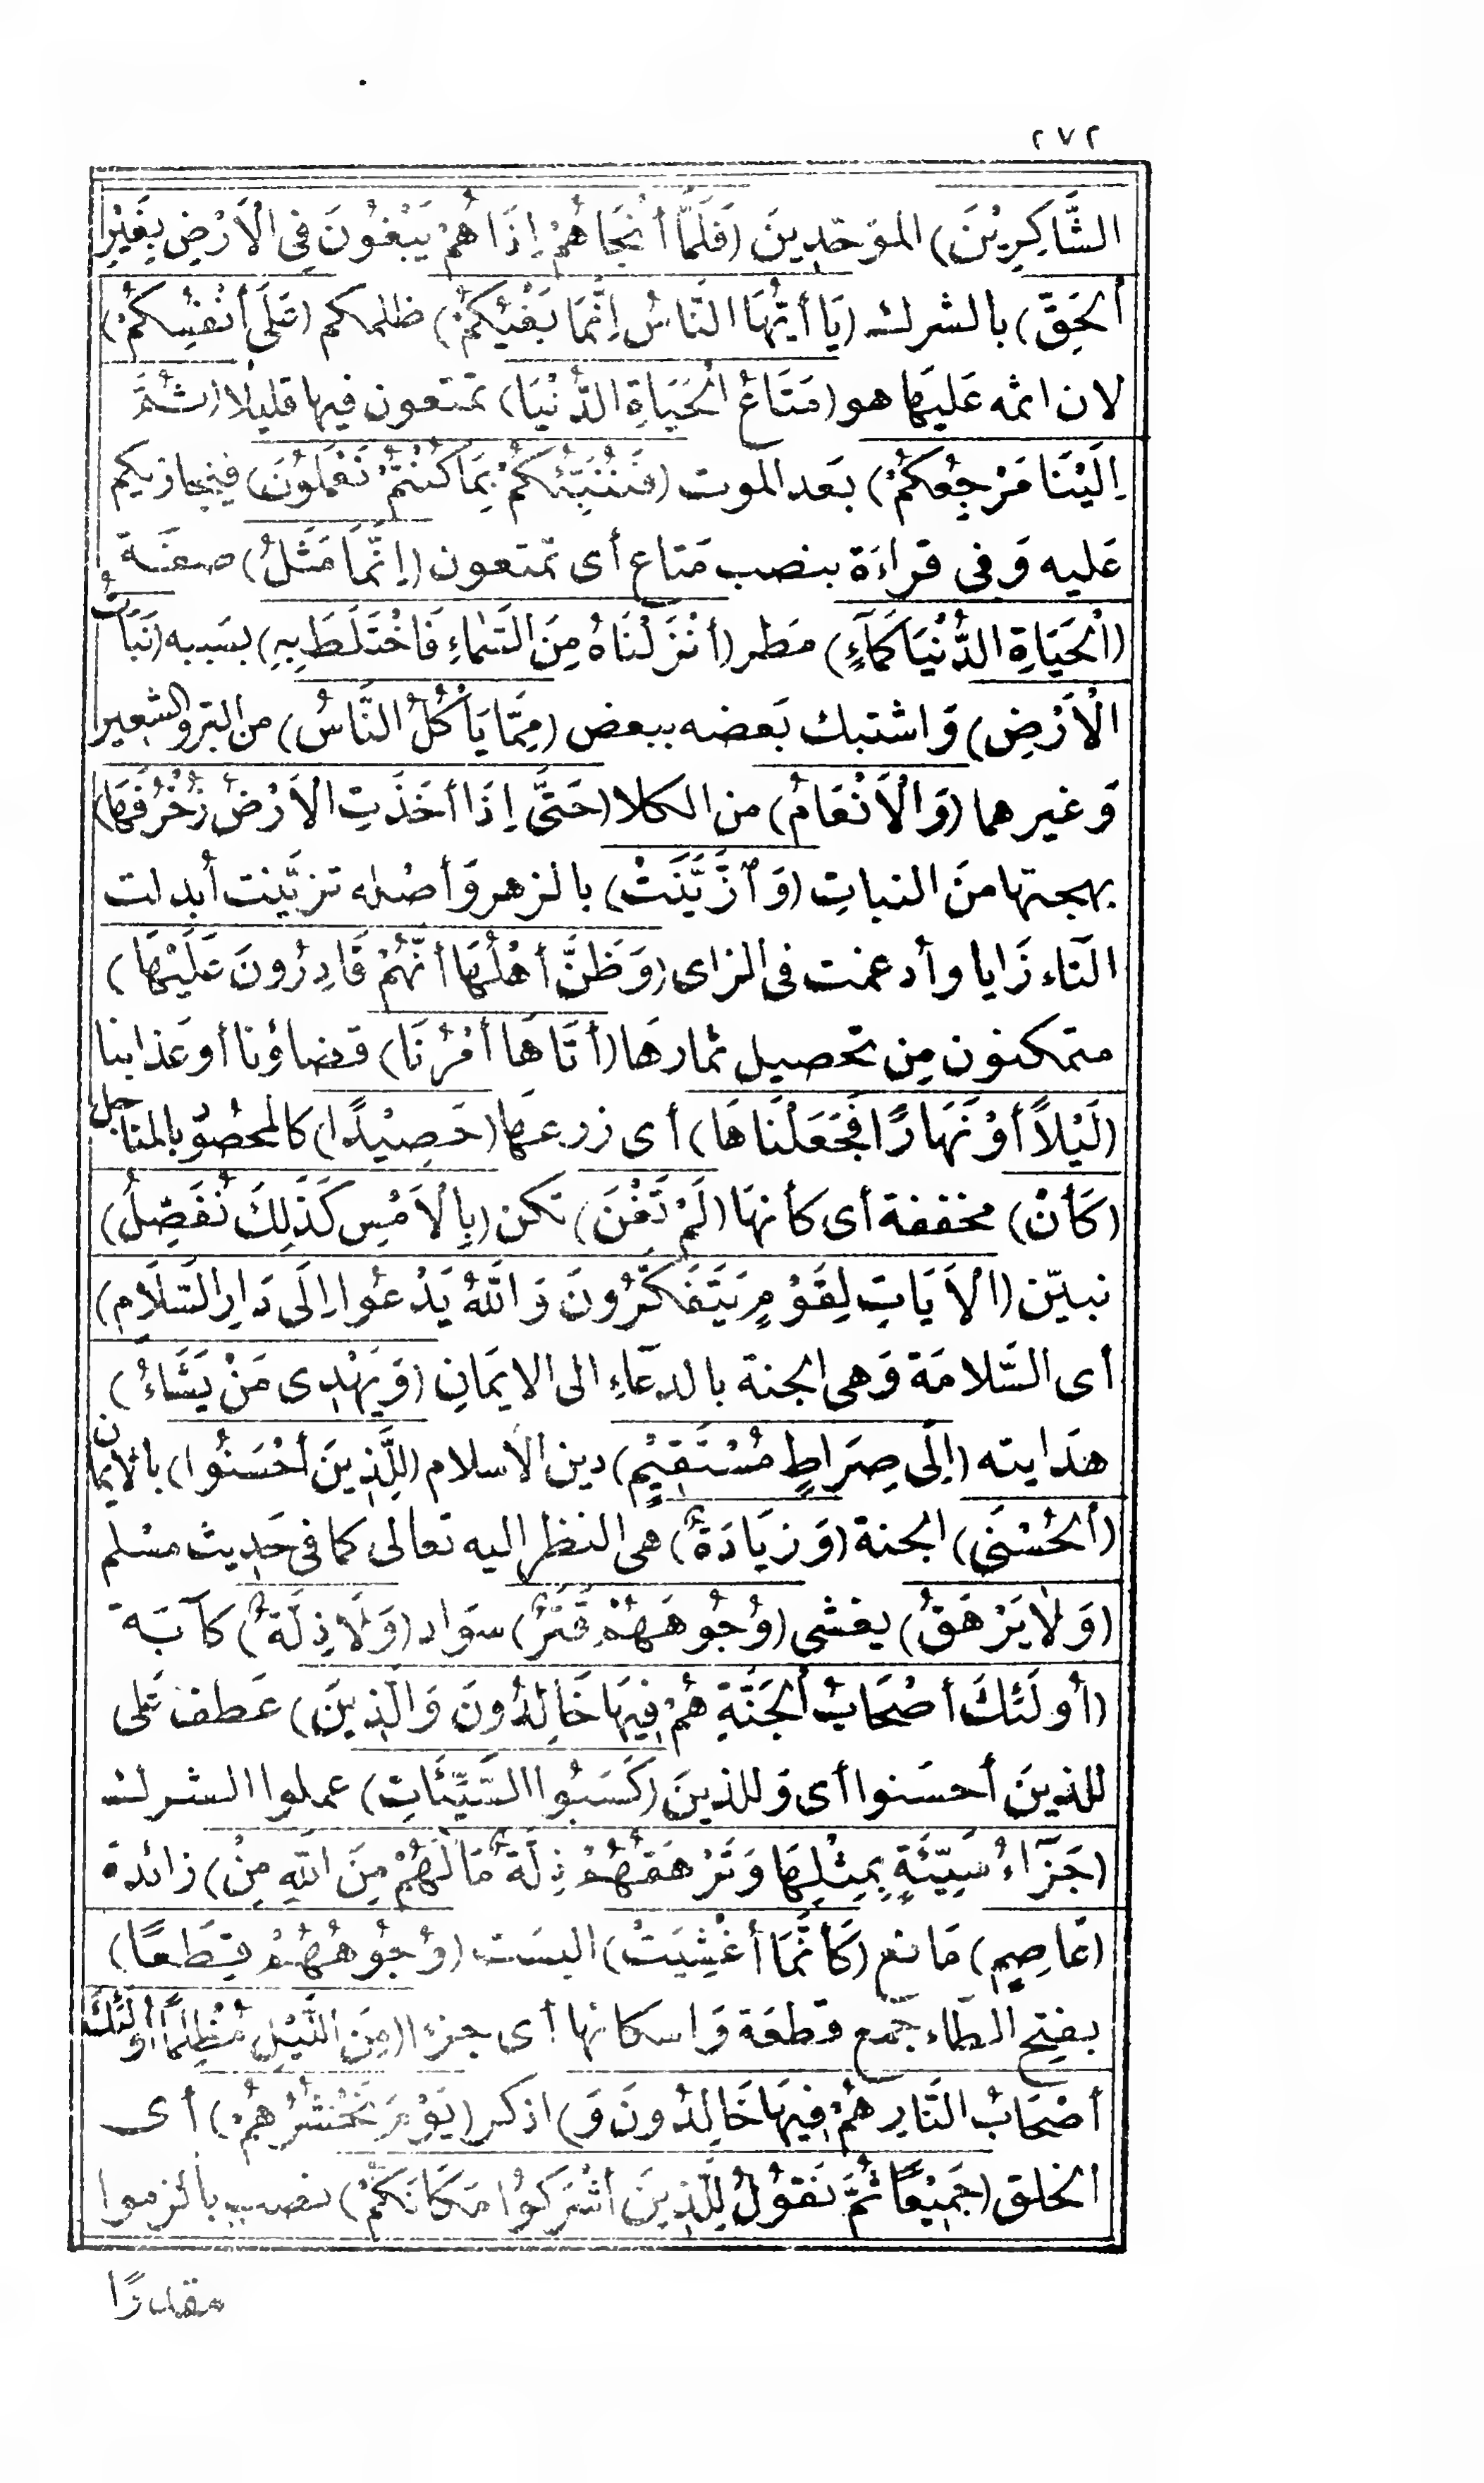 ٢٧٢
الشَّاكِرِيْنَ) الموَحّدِينَ (فَلَمَّا أنْجَاهُمْ إِذَا هُمْ يَبْغُونَ فِى الْاَرْضِ بِغَيْرِ
ألحَقّ) بالشرك (يَا أيُّهَا النَّاسُ اِنَّمَا بَغْيُكُمْ) ظلمكم (عَلَى أنْفُسِكُمْ)
لان اثمه عَليهَا هو (مَتَاعُ الْحَيَاةِ الدُّنْيَا) تمتعون فيها قليلا (ثُمَّ
اِلَيْنَا مَرْجِعُكُمْ) بَعد الموت (فَنُنَبِّئُكُمْ بِمَا كُنْتُمْ تَعْمَلُونَ) فيجازيكم
عَليه وَفى قراءَة بنصب مَتاع أى تمتعون (اِنَّمَا مَثَلُ) صفَة
(اْلحَيَاةِ الدُّنْيَا كَمَآءٍ) مَطر (أنْزَلْنَاهُ مِنَ السَّمَاءِ فَاخْتَلَطَ بِهِ) بسَببه (نَبَاتُ
الْاَرْضِ) وَاشتبك بَعضه ببعض (مِمَّا يَأكُلُ النَّاسُ) من البرّ والشعير
وَغيرهما (وَالْاَنْعَامُ) من الكلا (حَتَّى اِذَا أخَذَتِ الاَرْضُ زُخْرُفَهَا)
بهجتها منَ النباتِ (وَٱزَّيَّنَتْ) بالزهر وَأصْله تزيَّنت أبدلت
التَاء زَايا وأدغمت فى الزاى (وَظَنَّ أهْلُهَا أنَّهُمْ قَادِرُونَ عَلَيْهَا)
متمكنون مِن تحصيل ثمارهَا (أتَاهَا أمْرُنَا) قضاؤنا أو عَذابنا
(لَيْلاً أوْ نَهَارًا فَجَعَلْنَاهَا) أى زرعهَا (حَصِيْدًا) كالمحصُود بالمناجل
(كَأنْ) مخففة أى كأنهَا (لَمْ تَغْنَ) تكن (بِالْاَمْسِ كَذَلِكَ نُفَصِّلُ)
نبيّن (الْاَيَاتِ لِقَوْمٍ يَتَفَكَّرُونَ وَاللَّهُ يَدْعُوا اِلَى دَارِ السَّلَامِ)
أى السَّلامَة وَهى الجنة بالدعَاءِ الى الايمَانِ (وَيَهْدِى مَنْ يَشَاءُ)
هدَايته (اِلَى صِرَاطٍ مُسْتَقِيْمٍ) دين الاسلام (لِلَّذِينَ أحْسَنُوا) بالايمان
(ألحُسْنَى) الجنة (وَزيَادَةٌ) هى النظر اليه تعالى كما فى حَديث مسْلم
(وَلَا يَرْهَقُ) يغشى (وُجُوهَهُمْ قَتَرٌ) سوَاد (وَلَا ذِلَّةٌ) كآبَة
(أُولَئكَ أصْحَابُ ألْجَنَّةِ هُمْ فِيهَا خَالِدُونَ وَالَّذِينَ) عَطف عَلى
للذينَ أحسَنوا أى وَللذينَ (كَسَبُوا السَّيِّئَاتِ) عملوا الشرك
(جَزَآءُ سَيِّئَةٍ بِمِثْلِهَا وَتَرْهَقُهُمْ ذِلَّةٌ مَا لَهُمْ مِنَ اللَّهِ مِنْ) زائدة
(عَاصِمٍ) مَانع (كَأنَّمَا أغْشِيَتْ) البسَت (وُجُوهُهُمْ قِطَعًا)
بفتح الطاء جَمع قطعَة وَاسكانها أى جزءا (مِنَ اللَّيْلِ مُظْلِمًا أُولَئكَ
أصْحَابُ النَّارِ هُمْ فِيهَا خَالِدُونَ وَ) اذكر (يَوْمَ نَحْشُرُهُمْ) أى
الخلق (جَمِيْعًا ثُمَّ نَقولُ لِلَّذِينَ أشْرَكُوا مَكَانَكُمْ) نصب بألزموا
مقدرًا